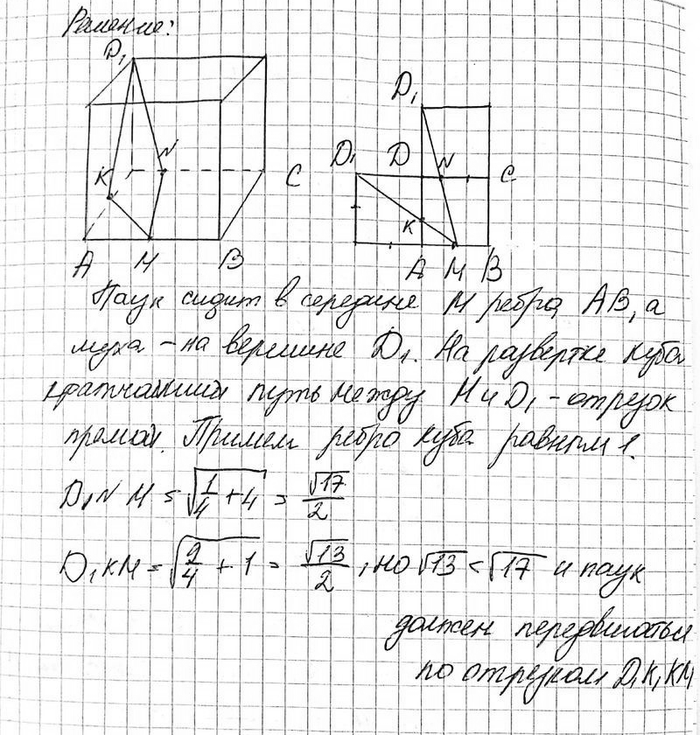 Решение:
D₁
K
N
C
A
M
B
D₁
D₁
D
N
C
K
A
M
B
Паук сидит в середине M ребра AB, а
муха - на вершине D₁. На развертке куба
кратчайший путь между M и D₁ - отрезок
прямой. Примем ребро куба равным 1.
D₁NM = √(1/4 + 4) = √17/2
D₁KM = √(9/4 + 1) = √13/2, но √13 < √17 и паук
должен передвигаться
по отрезкам D₁K, KM